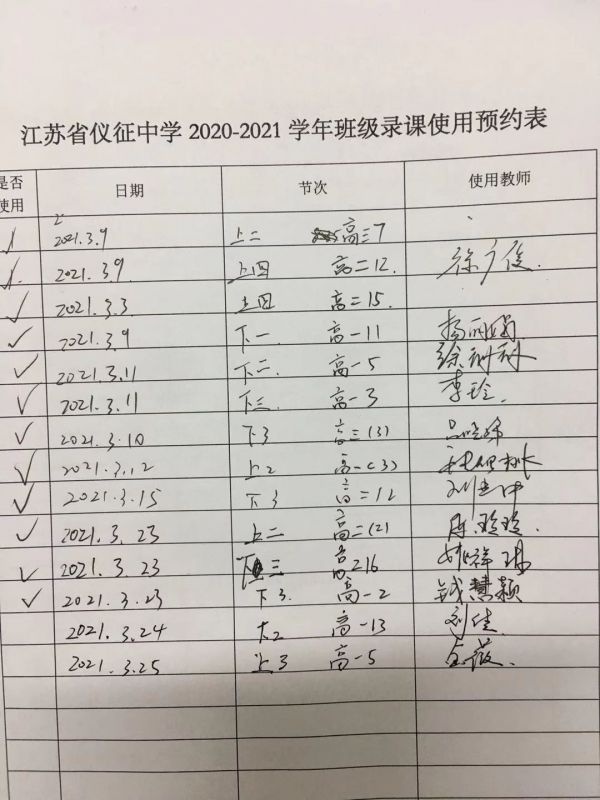 江苏省仪征中学 2020-2021 学年班级录课使用预约表
是否使用 日期 节次 使用教师
2021.3.9 上二 高三7
2021.3.9 上四 高二12.
2021.3.3 上四 高二15.
2021.3.9 下一 高一11
2021.3.11 下二. 高一5
2021.3.11 下三. 高一3 李玲.
2021.3.10 下3 高三(3)
2021.3.12 上2 高一(3)
2021.3.15 下3 高二12
2021.3.23 上二 高二(2) 陈玲玲.
2021.3.23 下三 高216
2021.3.23 下3. 高一2 钱慧颖
2021.3.24 下2 高一13 刘佳.
2021.3.25 上3 高一5